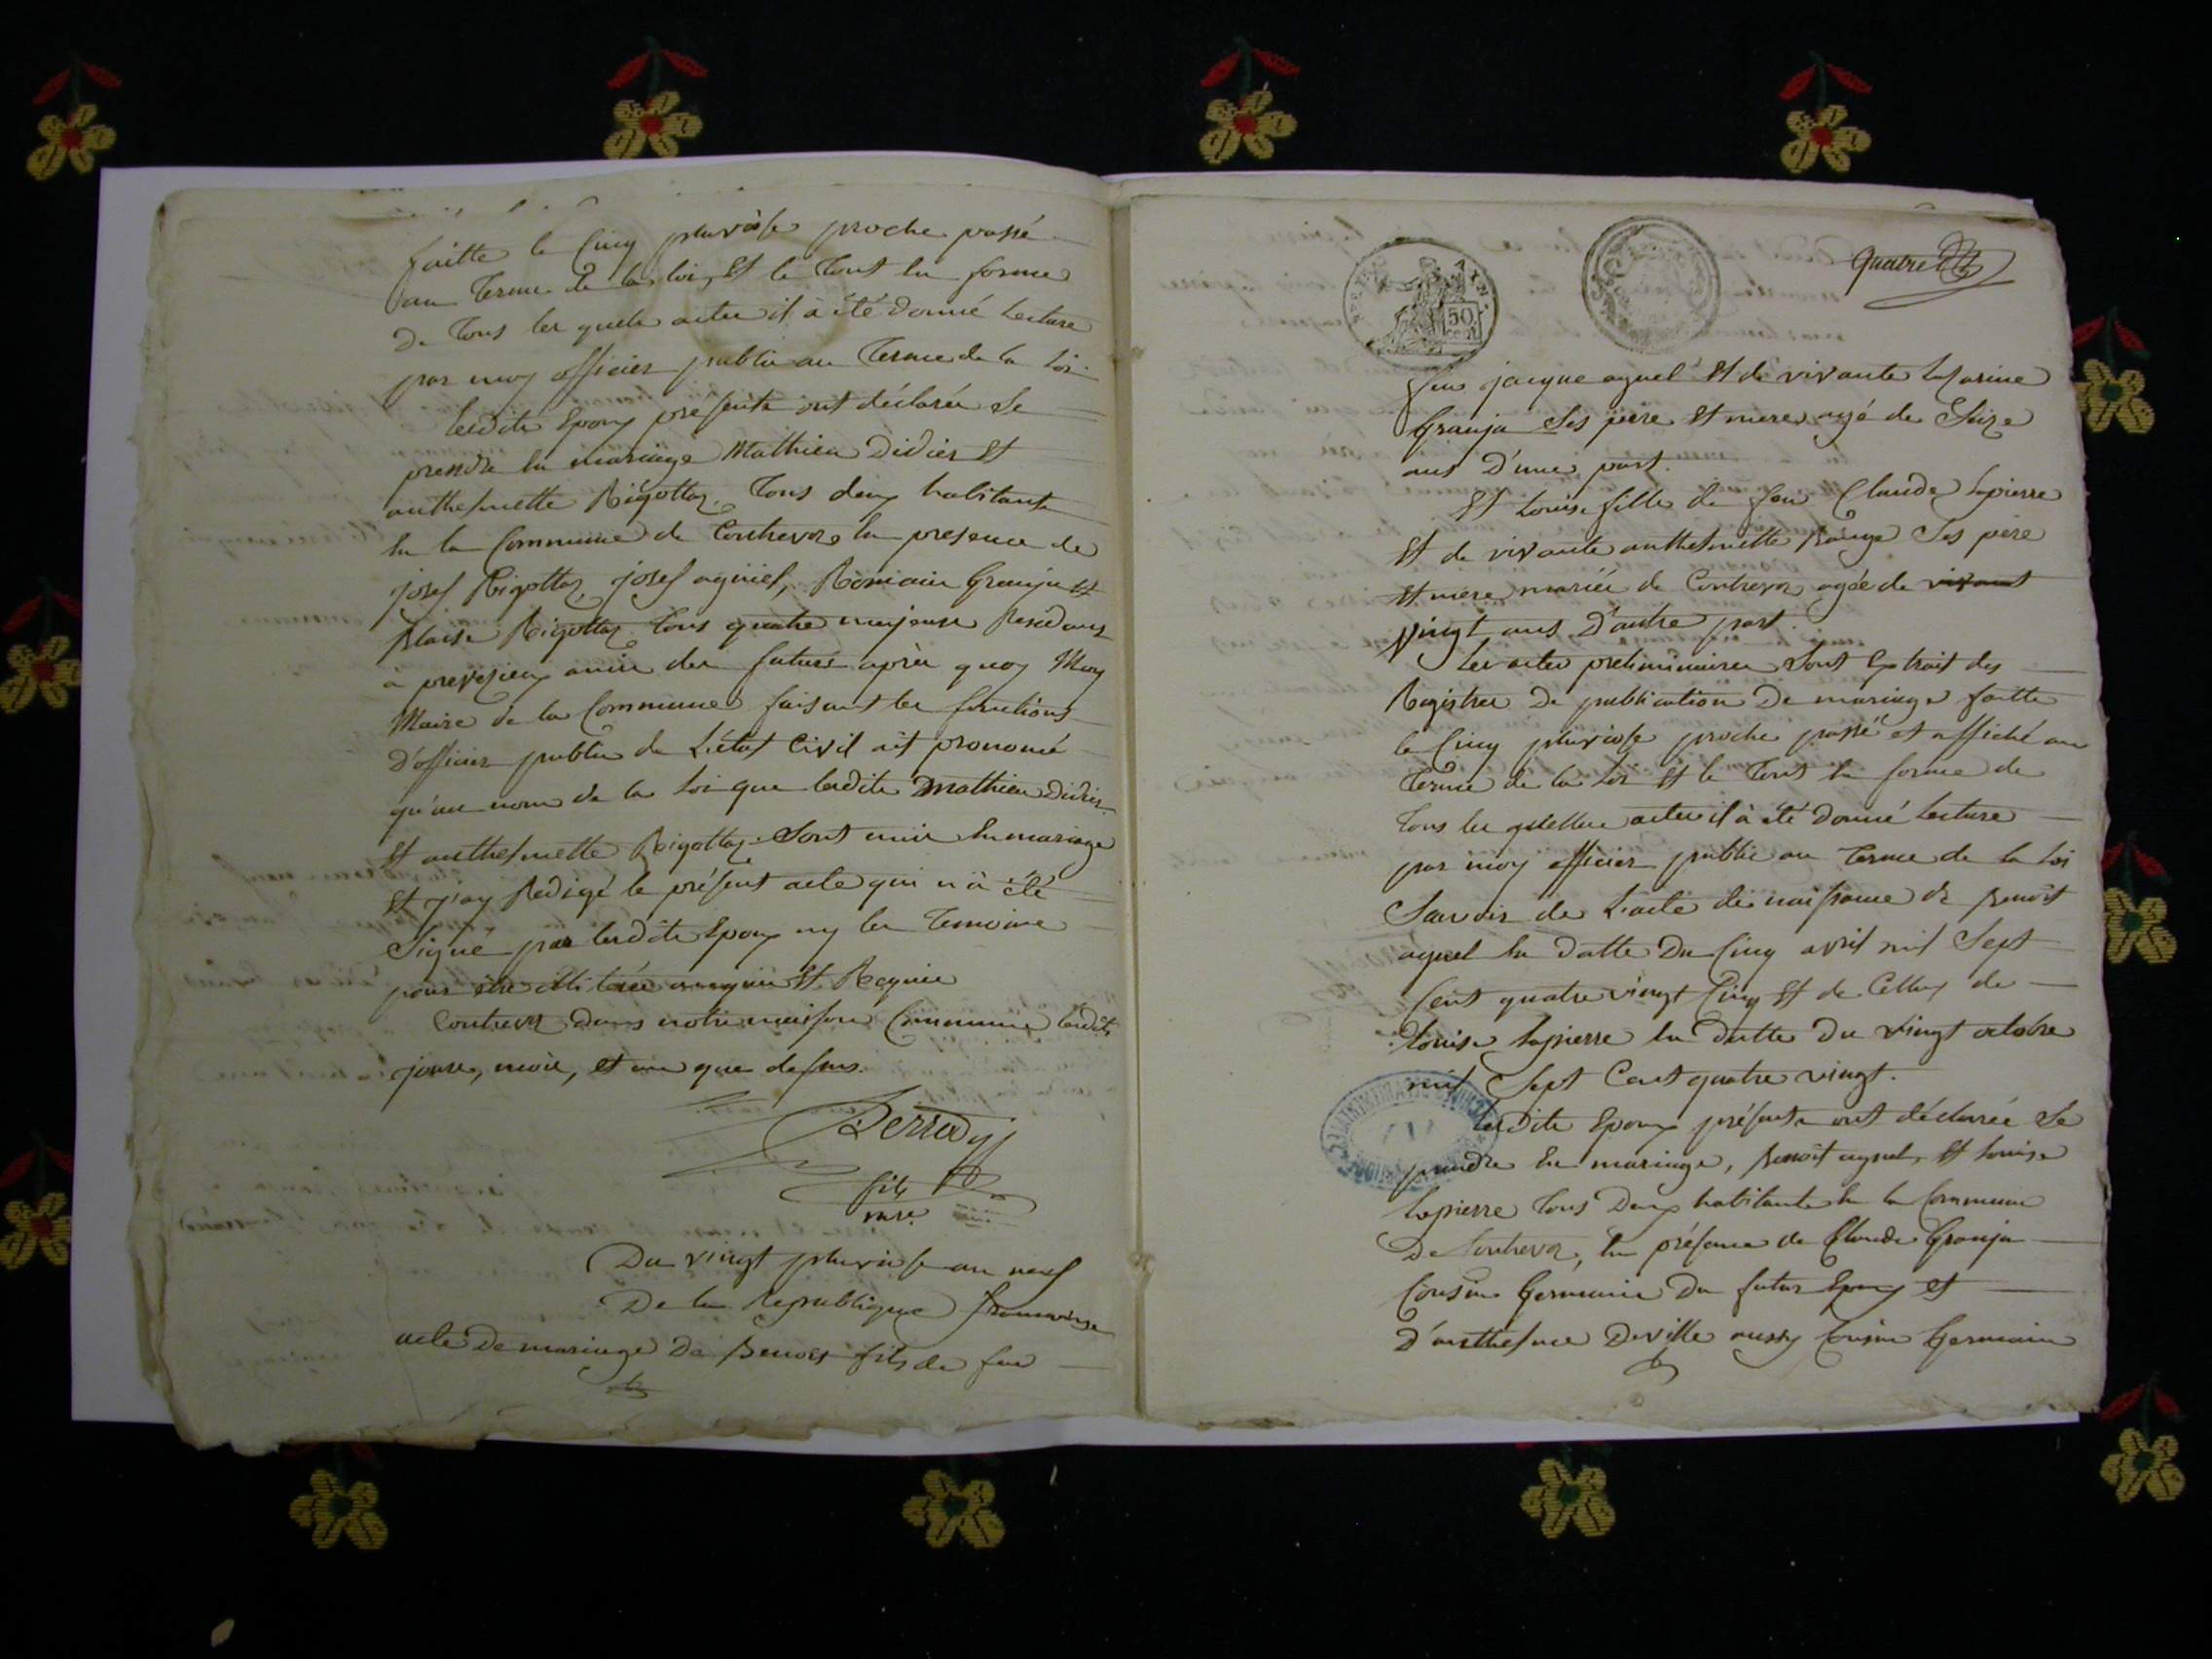 faitte le Cinq pluviôse proche passé
au terme de la loi, Et le tout En forme
De tous les quels actes il à été donné Lecture
par moy officier public au terme de la Loi.
lesdits Epoux présents ont déclarés se
prendre En mariage Mathieu Didier Et
anthelmette Rigottaz. tous deux habitants
En la Commune de Contrevoz En presence de
josef Rigottaz, josef aguiel, Romain Granja Et
Blaise Rigottaz tous quatre majeurs Residans
à premezieu amis des futurs après quoy Moy
Maire de la Commune faisant les fonctions
d'officier public de L'état Civil ait prononcé
qu'au nom de la Loi que lesdits Mathieu Didier
Et anthelmette Rigottaz Sont unis En mariage
Et j'ay Redigé le présent acte qui n'à été
Signé par lesdits Epoux ny les temoins
pour être illiterés enquis Et Requis
Contrevoz dans notre maison Commune lesdits
jours, mois, et an que dessus.
fils
mre.
Du vingt pluviôse an neuf
De la Republique francaise
acte De mariage De Benoit fils de feu
quatre
AIN
50
cent
feu jacque aguel Et de vivante
Granja Ses pere Et mere agé de Seize
ans D'une part.
Et Louise fille de feu Claude Lapierre
Et de vivante anthelmette Ses père
Et mere mariés de Contrevoz agée de vivant
Vingt ans D'autre part.
Les actes preliminaires Sont Extrait des
Registres De publication De mariage faitte
le Cinq pluviose proche passé et affiché au
terme de la Loi Et le tout En forme de
tous les quelles actes il à été Donné Lecture
par moy officier public au terme de la Loi
Savoir de L'acte de naissance de Benoit
aguel En Datte Du Cinq avril mil Sept
Cent quatre vingt Cinq Et de Celluy de
Louise Lapierre En Datte Du vingt octobre
mil Sept Cent quatre vingt.
lesDits Epoux présents ont déclarés Se
prendre En mariage, Benoit aguel, Et Louise
Lapierre tous Deux habitants En la Commune
De Contrevoz, En présence de Claude Granja
Cousin Germain Du futur Epoux et
D'anthelme Deville aussy Cousin Germain